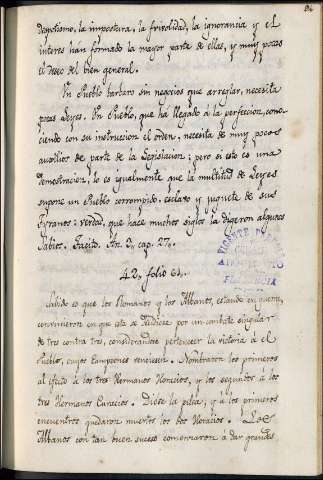 94
despotismo, la impostura, la frivolidad, la ignorancia y el
interes han formado la mayor parte de ellas, y muy pocos
el deseo del bien general.
Un Pueblo barbaro sin negocios que arreglar, necesita
pocas Leyes. Un Pueblo, que ha llegado á la perfeccion, cono-
ciendo con su instruccion el orden, necesita de muy pocos
auxilios de parte de la Legislacion; pero si esto es una
demostracion, lo es igualmente que la multitud de Leyes
supone un Pueblo corrompido, esclavo y juguete de sus
Tyranos: verdad, que hace muchos siglos la digeron algunos
Sabios. Tacito. An. 3, cap. 27.
42, folio 61.
Sabido es que los Romanos y los Albanos, estando en guerra,
convinieron en que esta se decidiese por un combate singular
de tres contra tres, considerandose pertenecer la victoria á el
Pueblo, cuyos Campeones venciesen. Nombraron los primeros
al efecto á los tres Hermanos Horacios, y los segundos á los
tres Hermanos Curacios. Diose la pelea, y á los primeros
encuentros quedaron muertos los dos Horacios. Los
Albanos con tan buen suceso comenzaron á dar grandes